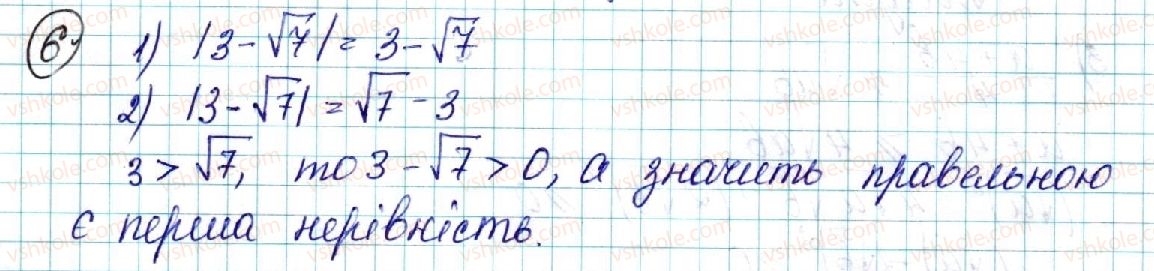 6) 1) |3-√7| = 3-√7
2) |3-√7| = √7 - 3
3 > √7, то 3 - √7 > 0, а значить правельною
є перша нерівність.